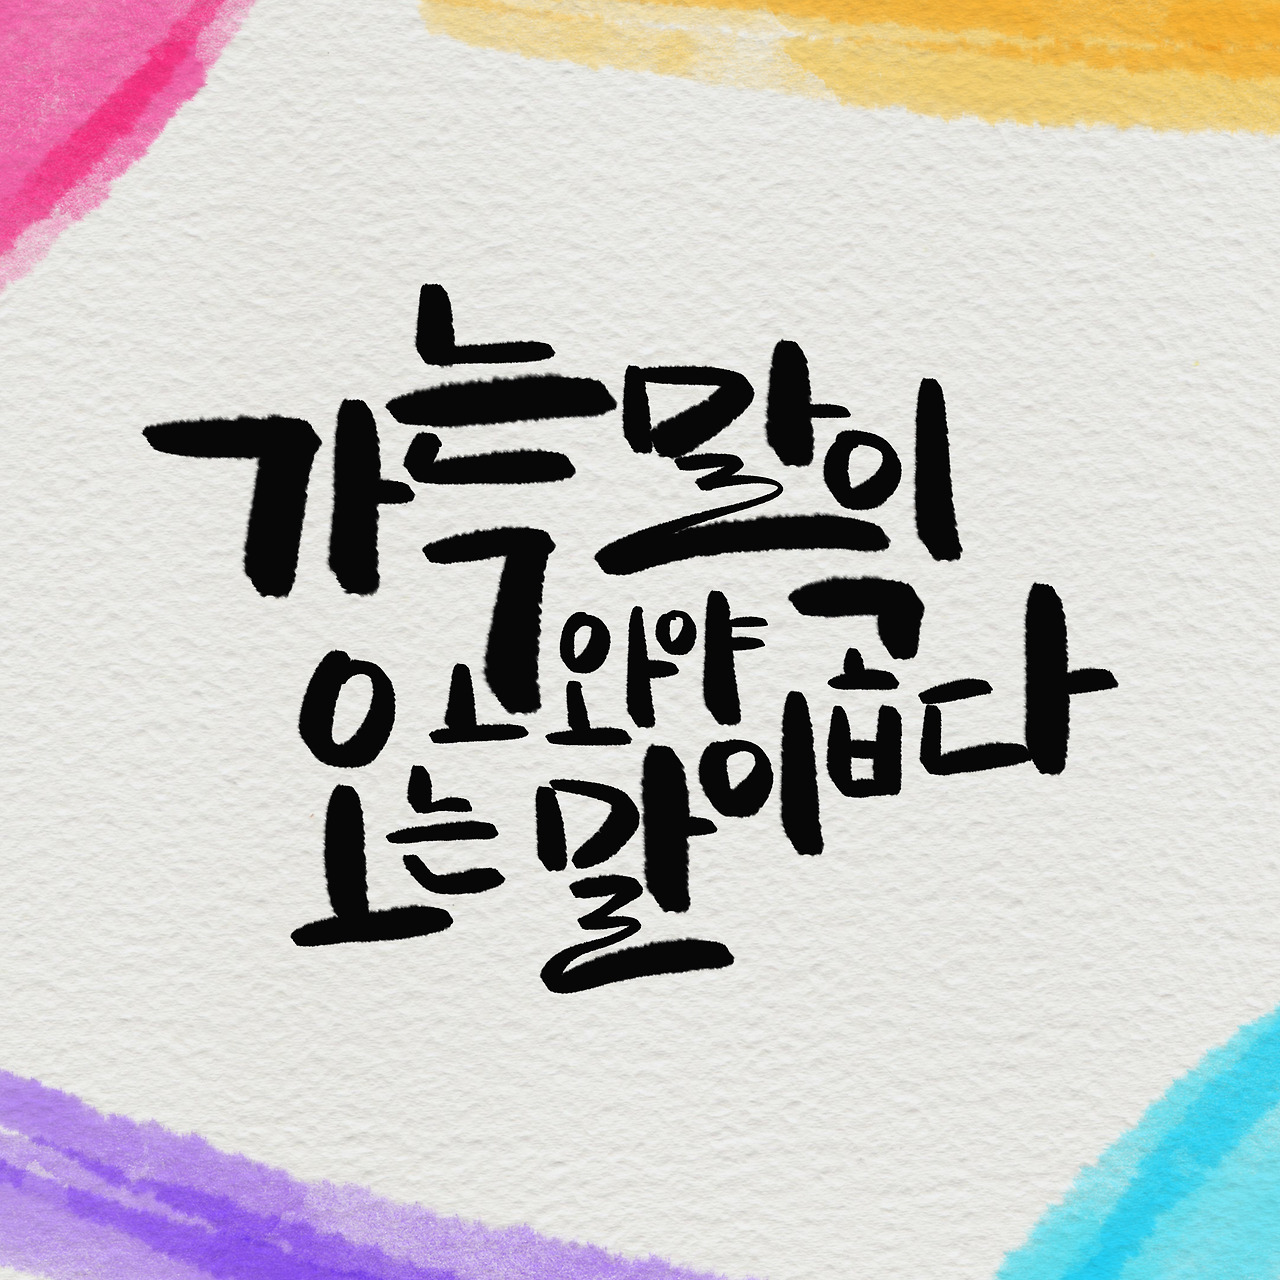 가는 말이
고와야
오는 말이 곱다